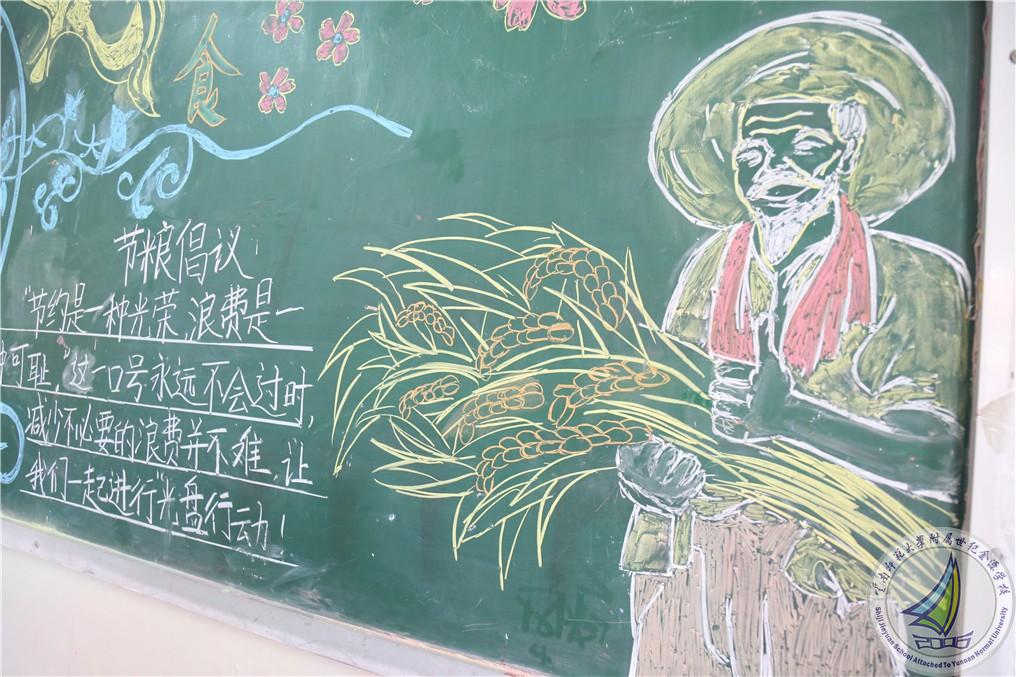 食
节粮倡议
"节约是一种光荣,浪费是一
种可耻"这一口号永远不会过时,
减少不必要的浪费并不难,让
我们一起进行"光盘行动!
云南师范大学附属世纪金源学校
Shiji Jinyuan School Attached To Yunnan Normal University
2006